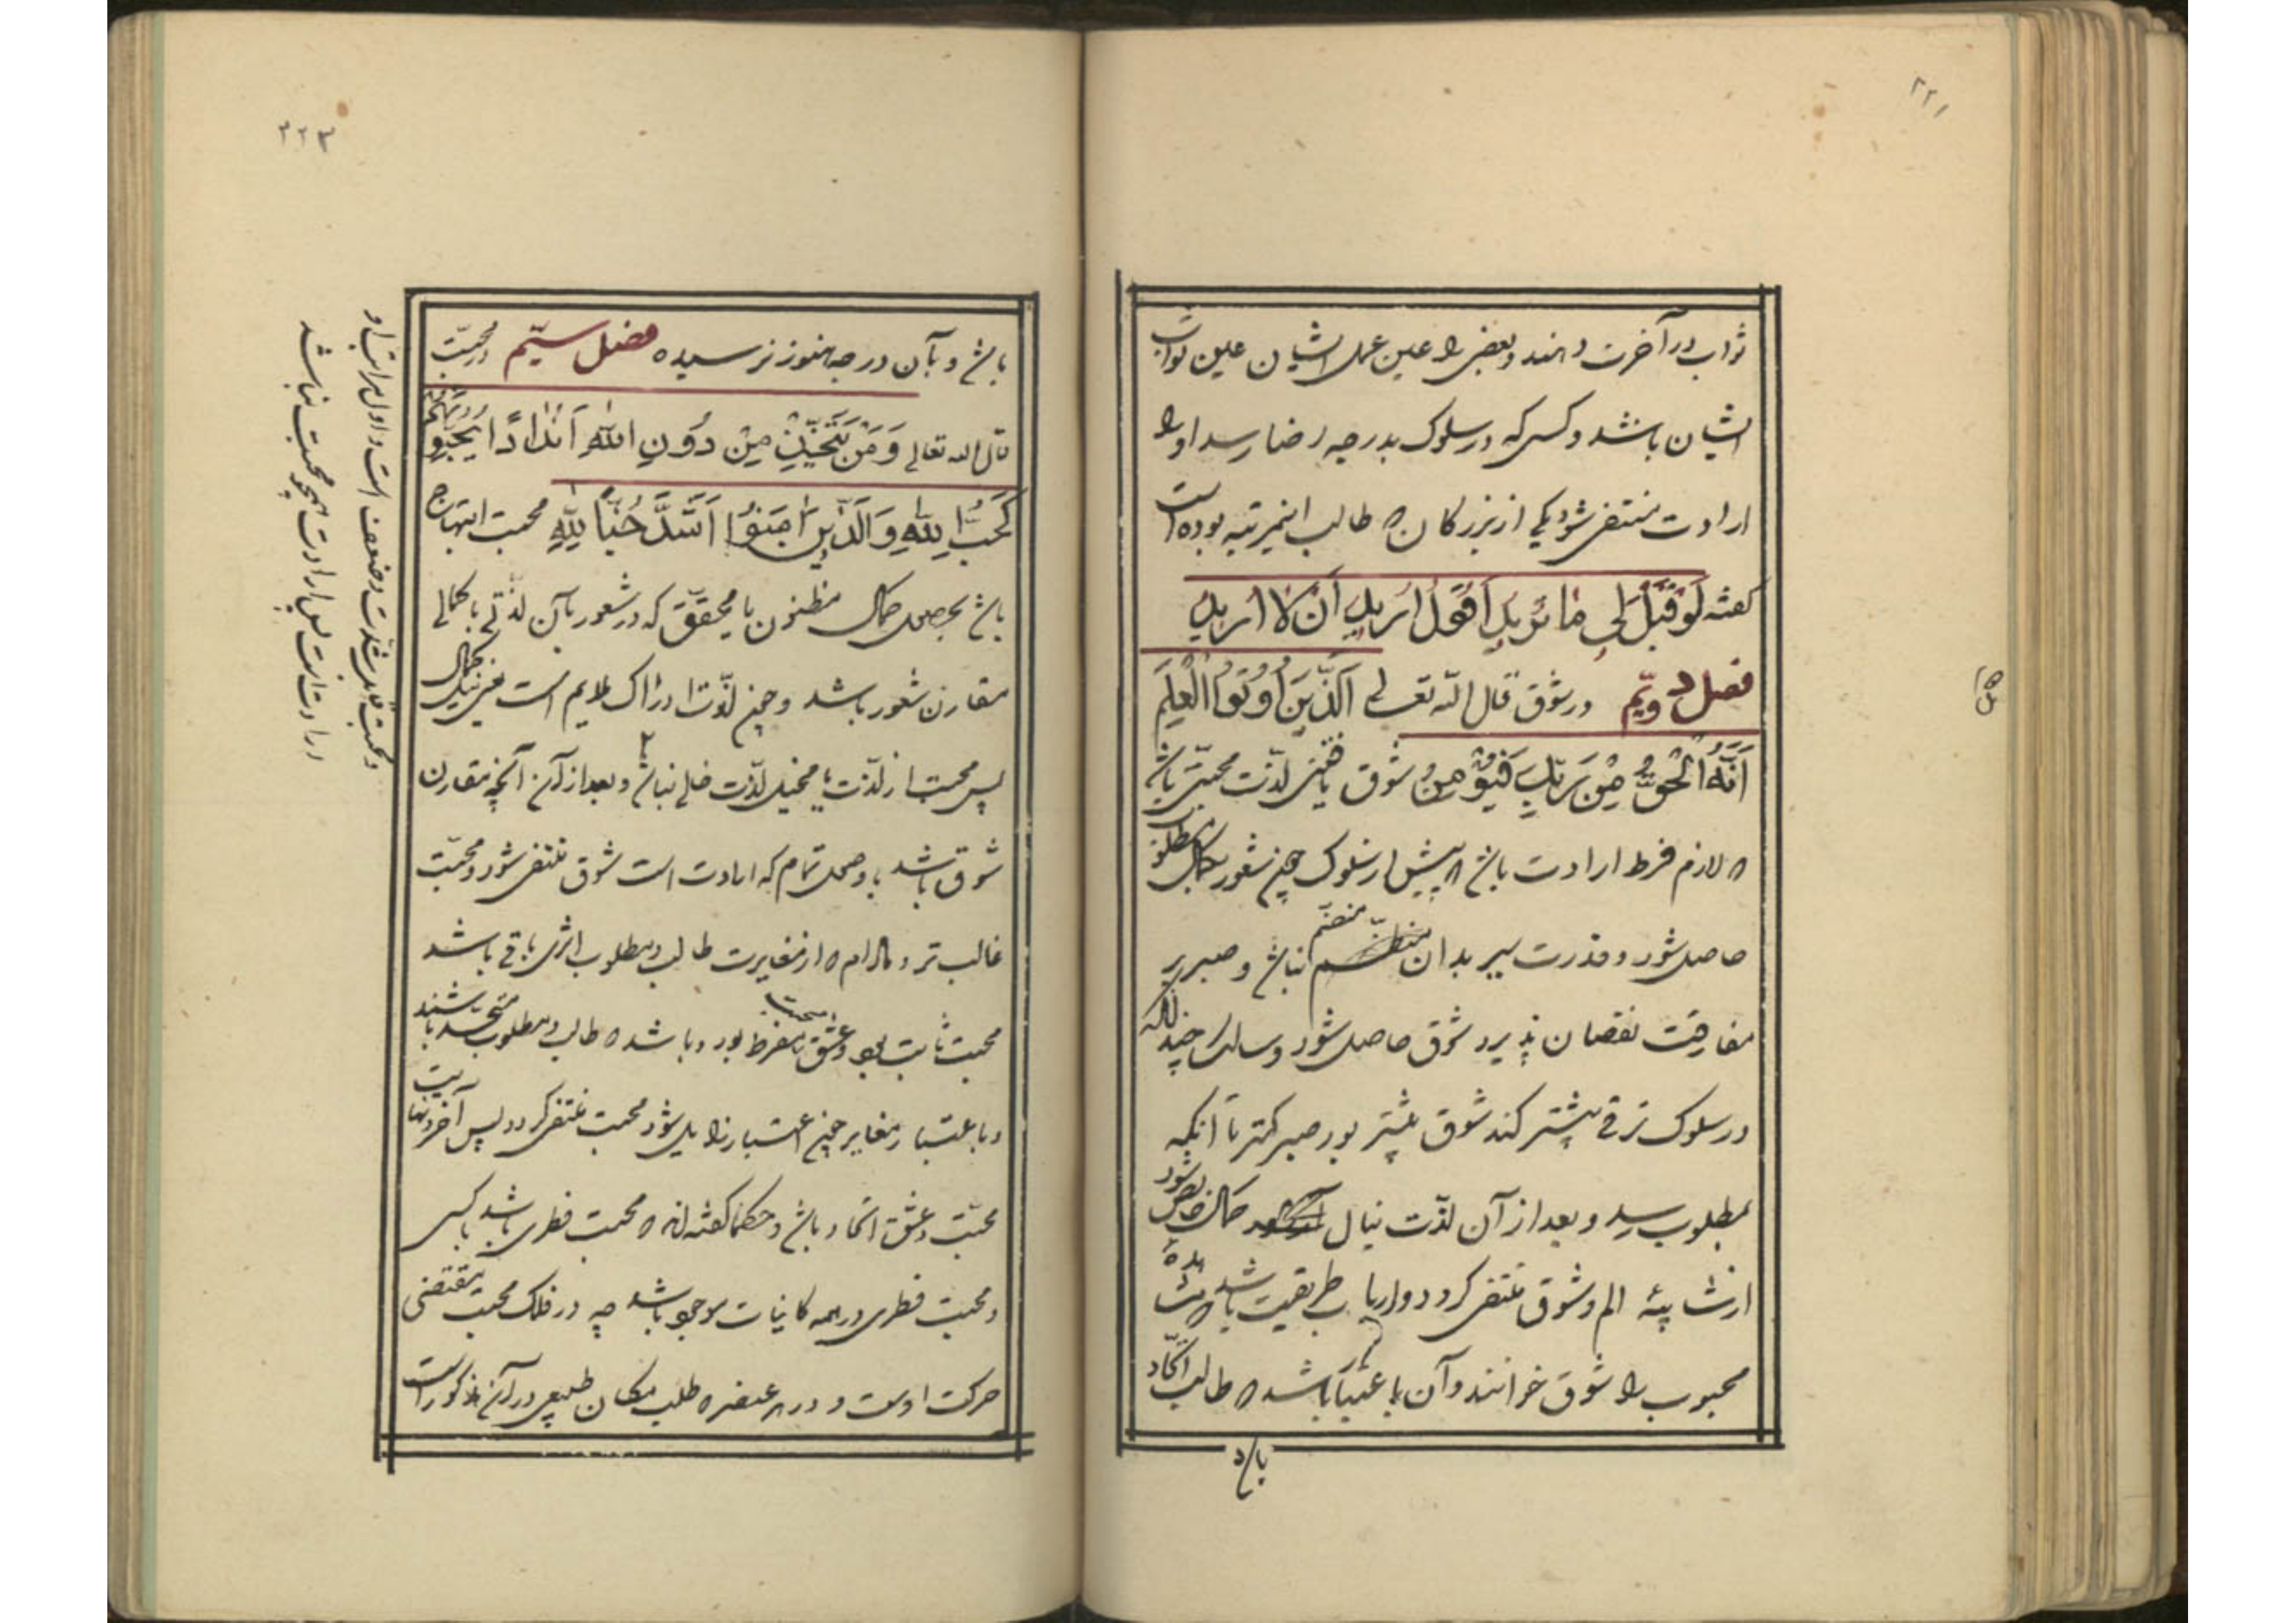 ۲۲۱
ثواب در آخرت دهند و بعضی را عین عمل ایشان عین ثواب
ایشان باشد و کسی که در سلوک بدرجه رضا رسد او را
ارادت منتفی شود یکی از بزرگان که طالب اینمرتبه بوده است
گفته لَو قیلَ لی ما تُریدُ اَقولُ اُریدُ اَن لا اُریدُ
فصل دویّم در شوق قال الله تعالی اَلَّذینَ اُوتُوا الْعِلْمَ
اَنَّهُ الْحَقُّ مِنْ رَبِّکَ فَیُؤمِنُ شوق یافتن لذّت محبتی باشد
که لازم فرط ارادت باشد پیش از سلوک چون شعور بکمال مطلوب
حاصل شود و قدرت سیر بدان منضم نباشد و صبر بر
مفارقت نقصان پذیرد شوق حاصل شود و سالک چندانکه
در سلوک ترقی بیشتر کند شوق بیشتر بود و صبر کمتر تا آنکه
بمطلوب رسد و بعد از آن لذّت نیل کمال خالص شود
از شائبهٔ الم و شوق منتفی گردد و ارباب طریقت باشد که مشاهدهٔ
محبوب را شوق خوانند و آن باعتبار آن باشد که طالب اتّحاد
باشد
۲۲۳
باشد و بآن درجه هنوز نرسیده فصل سیّم در محبّت
قال الله تعالی وَمَنْ یَتَّخِذُ مِنْ دُونِ اللهِ اَنْدادًا یُحِبُّونَهُمْ
کَحُبِّ اللهِ وَالَّذینَ آمَنُوا اَشَدُّ حُبًّا لِلّهِ محبت ابتهاج
باشد بحصول کمال مظنون یا محقّق که در شعور بآن لذّتی یا کمالی
مقارن شعور باشد و چون لذّت ادراک ملایم است یعنی نیل کمال
پس محبت از لذّت یا تخیل لذّت خالی نباشد و بعد از آن آنچه مقارن
شوق باشد با وصول تمام که ارادت است شوق منتفی شود و محبّت
غالب تر و مادام که از مغایرت طالب و مطلوب اثری باقی باشد
محبت ثابت بود و عشق محبت مفرط بود و باشد که طالب و مطلوب متّحد باشند
و باعتبار مغایر چون اعتبار زایل شود محبت منتفی گردد پس آخر و نهایت
محبّت و عشق اتحاد باشد و حکما گفته‌اند که محبت فطری باشد یا کسبی
و محبت فطری در همه کاینات موجود باشد چه در فلک محبت مقتضی
حرکت اوست و در هر عنصر که طلب مکان طبیعی در آن مذکور است
و محبت قابل شدّت و ضعف است و اول مراتب او
ارادت است پس ارادت همچو محبت نباشد